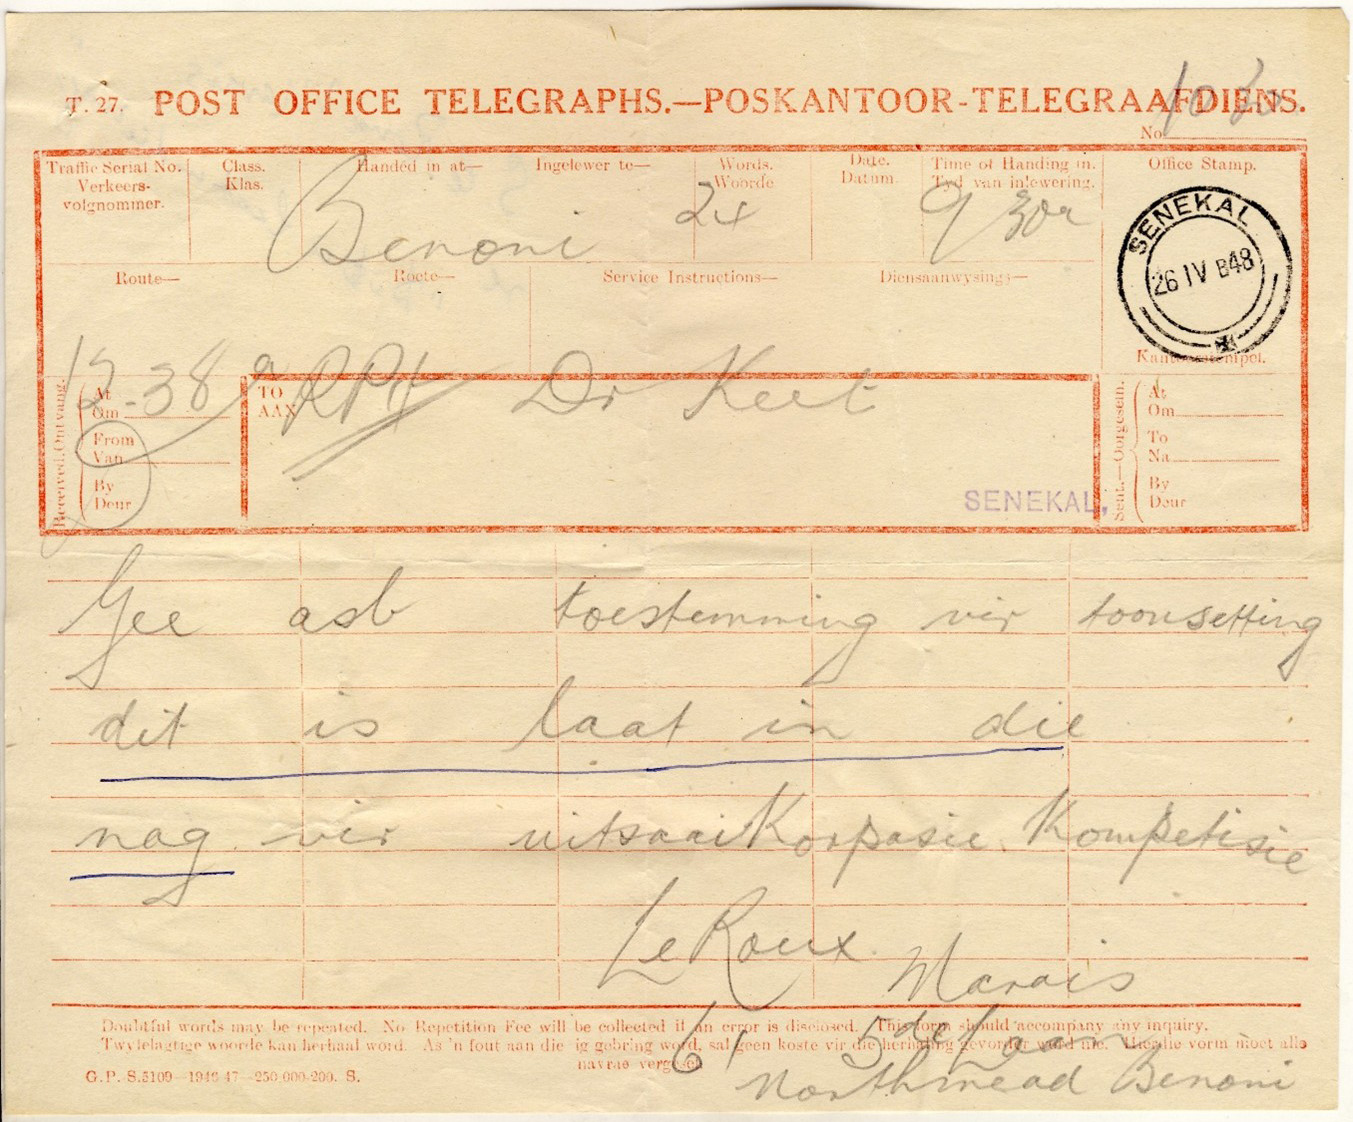 T. 27. POST OFFICE TELEGRAPHS.—POSKANTOOR-TELEGRAAFDIENS.
No
Traffic Serial No. Class. Handed in at— Ingelewer te— Words. Date. Time of Handing in. Office Stamp.
Verkeers- Klas. Woorde Datum. Tyd van inlewering.
volgnommer.
Benoni 24 9 30a
SENEKAL
26 IV B48
Route— Roete— Service Instructions— Diensaanwysings—
Kantoorstempel.
Received.Ontvang. TO Sent.—Oorgesein.
At AAN At
Om 12-38 RPH Dr Keet Om
From To
Van Na
By By
Deur SENEKAL, Deur
Gee asb toestemming vir toonsetting
dit is laat in die
nag vir uitsaaiKorpasie Kompetisie
Le Roux Marais
61 5de Laan
Northmead Benoni
Doubtful words may be repeated. No Repetition Fee will be collected if an error is disclosed. This form should accompany any inquiry.
Twyfelagtige woorde kan herhaal word. As 'n fout aan die lig gebring word, sal geen koste vir die herhaling gevorder word nie. Hierdie vorm moet alle
navrae vergesel
G.P.-S.5109—1946-47—250,000-200. S.